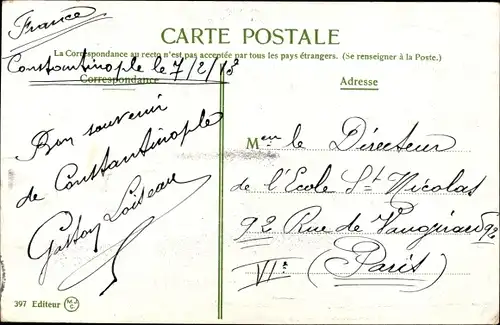 France
CARTE POSTALE
La Correspondance au recto n'est pas acceptée par tous les pays étrangers. (Se renseigner à la Poste.)
Constantinople le 7/2/13
Correspondance
Bon souvenir
de Constantinople
Gaston Loiseau
397 Editeur M.J.C.
Adresse
M le Directeur
de l'Ecole St Nicolas
92 Rue de Vaugirard 92
VIe (Paris)